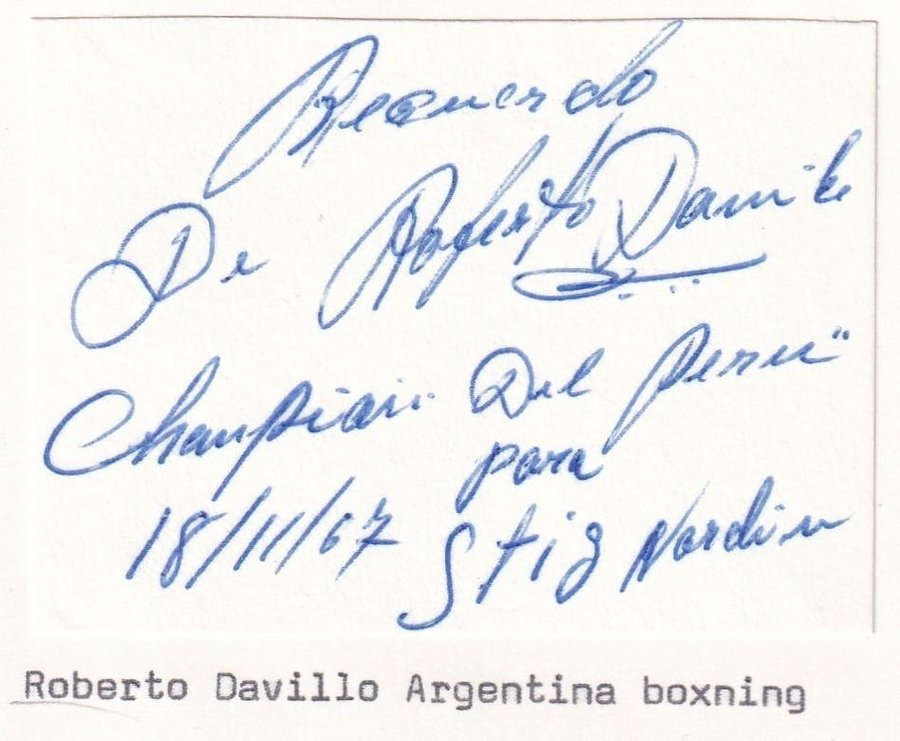 Recuerdo
De Roberto Davila
Champion Del Peru"
para
18/11/67 Stig Nordin
Roberto Davillo Argentina boxning